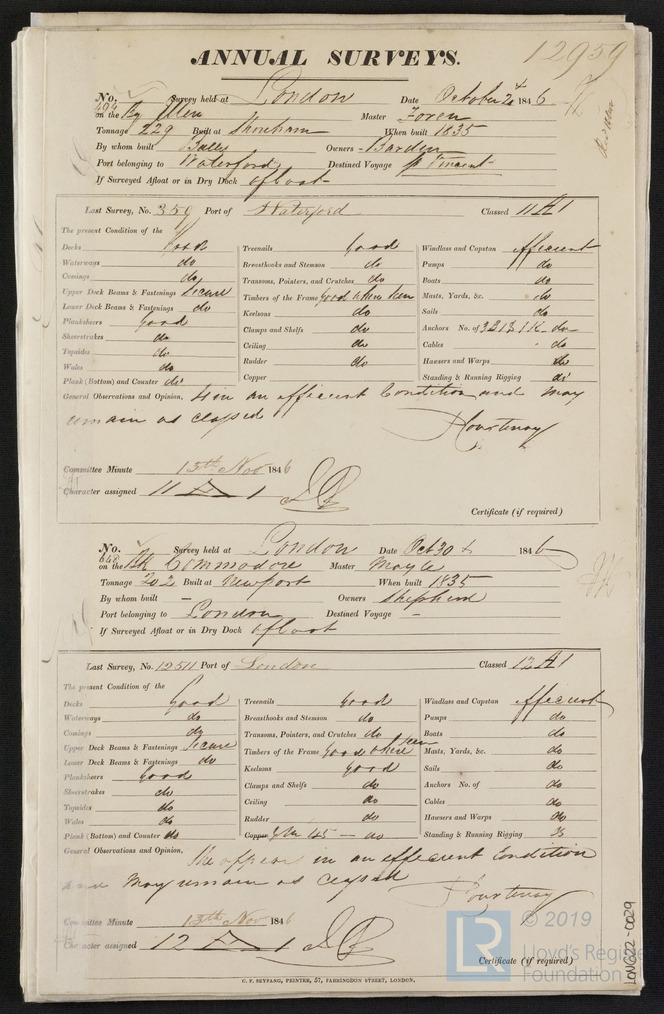 ANNUAL SURVEYS.
12959
No. 494 Survey held at London Date October 24 1846
on the Bg Ellen Master Foren
Tonnage 229 Built at Shoreham When built 1835
By whom built Bally Owners Barden
Port belonging to Waterford Destined Voyage St Vincent
If Surveyed Afloat or in Dry Dock afloat
Last Survey, No. 359 Port of Waterford Classed 11 A 1
The present Condition of the
Decks Good Treenails Good Windlass and Capstan efficient
Waterways do Breasthooks and Stemson do Pumps do
Comings do Transoms, Pointers, and Crutches do Boats do
Upper Deck Beams & Fastenings Secure Timbers of the Frame Good where seen Masts, Yards, &c. do
Lower Deck Beams & Fastenings do Keelsons do Sails do
Planksheers Good Clamps and Shelfs do Anchors No. of 3 2 B 1 K do
Sheerstrakes do Ceiling do Cables do
Topsides do Rudder do Hawsers and Warps do
Wales do Copper Standing & Running Rigging do
Plank (Bottom) and Counter do
General Observations and Opinion, Is in an efficient Condition and may
remain as classed
Courtenay
Committee Minute 13th Nov 1846
Character assigned 11 A 1
Certificate (if required)
No. 648 Survey held at London Date Oct 30 1846
on the Bk Commodore Master
Tonnage 202 Built at Newport When built 1835
By whom built — Owners Shepherd
Port belonging to London Destined Voyage -
If Surveyed Afloat or in Dry Dock afloat
Last Survey, No. 12511 Port of London Classed 12 A 1
The present Condition of the
Decks Good Treenails Good Windlass and Capstan efficient
Waterways do Breasthooks and Stemson do Pumps do
Comings do Transoms, Pointers, and Crutches do Boats do
Upper Deck Beams & Fastenings Secure Timbers of the Frame Good where seen Masts, Yards, &c. do
Lower Deck Beams & Fastenings do Keelsons Good Sails do
Planksheers Good Clamps and Shelfs do Anchors No. of do
Sheerstrakes do Ceiling do Cables do
Topsides do Rudder do Hawsers and Warps do
Wales do Copper 45 — do Standing & Running Rigging
Plank (Bottom) and Counter do
General Observations and Opinion, in an efficient Condition
and may remain as classed
Courtenay
Committee Minute 13th Nov 1846
Character assigned 12 A 1
Certificate (if required)
C. F. SEYFANG, PRINTER, 57, FARRINGDON STREET, LONDON.
LON622-0029
LR © 2019
Lloyd's Register
Foundation